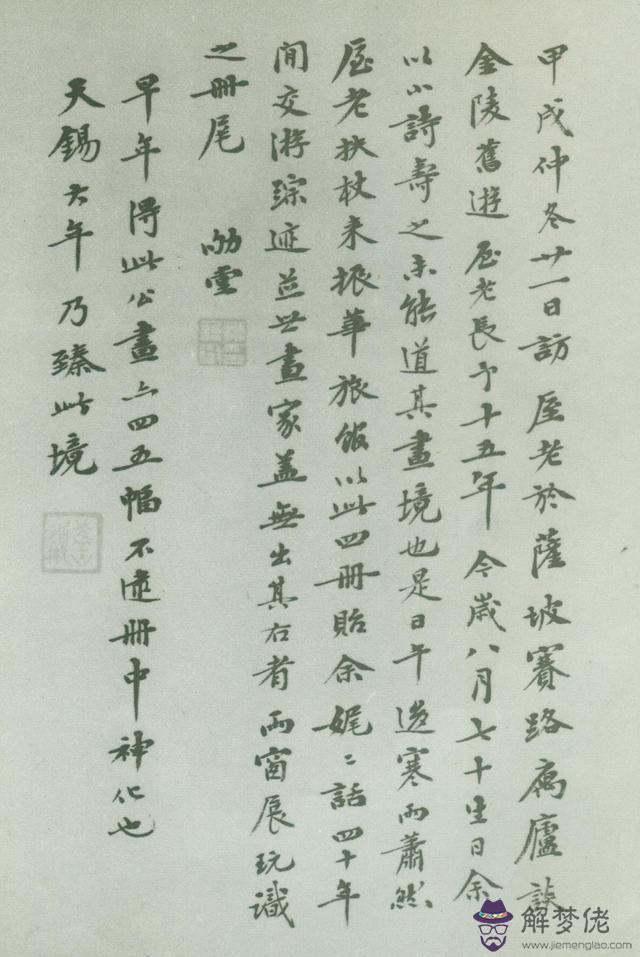 甲戌仲冬廿一日訪厔老於薩坡賽路寓廬談
金陵舊遊厔老長予十五年今歲八月七十生日余
以小詩壽之未能道其畫境也是日午後寒雨蕭然
厔老扶杖来振華旅館以此四冊貽余娓〻話四十年
閒交游踪迹並世畫家蓋無出其右者雨窗展玩識
之冊尾
早年得此公畫亦四五幅不逮冊中神化也
天錫大年乃臻此境
解梦佬
www.jiemenglao.com